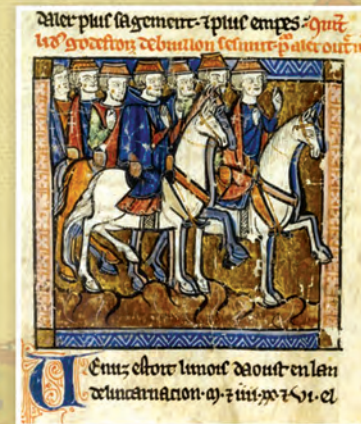 aler plus sagement · ⁊ plus en pes · Quit
li dꝰ godefroiz de buillon se smut · p̄ aler out̄ m
Tenuz estoit li mois daoust en lan
de lincarnacion · ꝙ · ⁊ iiii · xx · ⁊ xvi · el